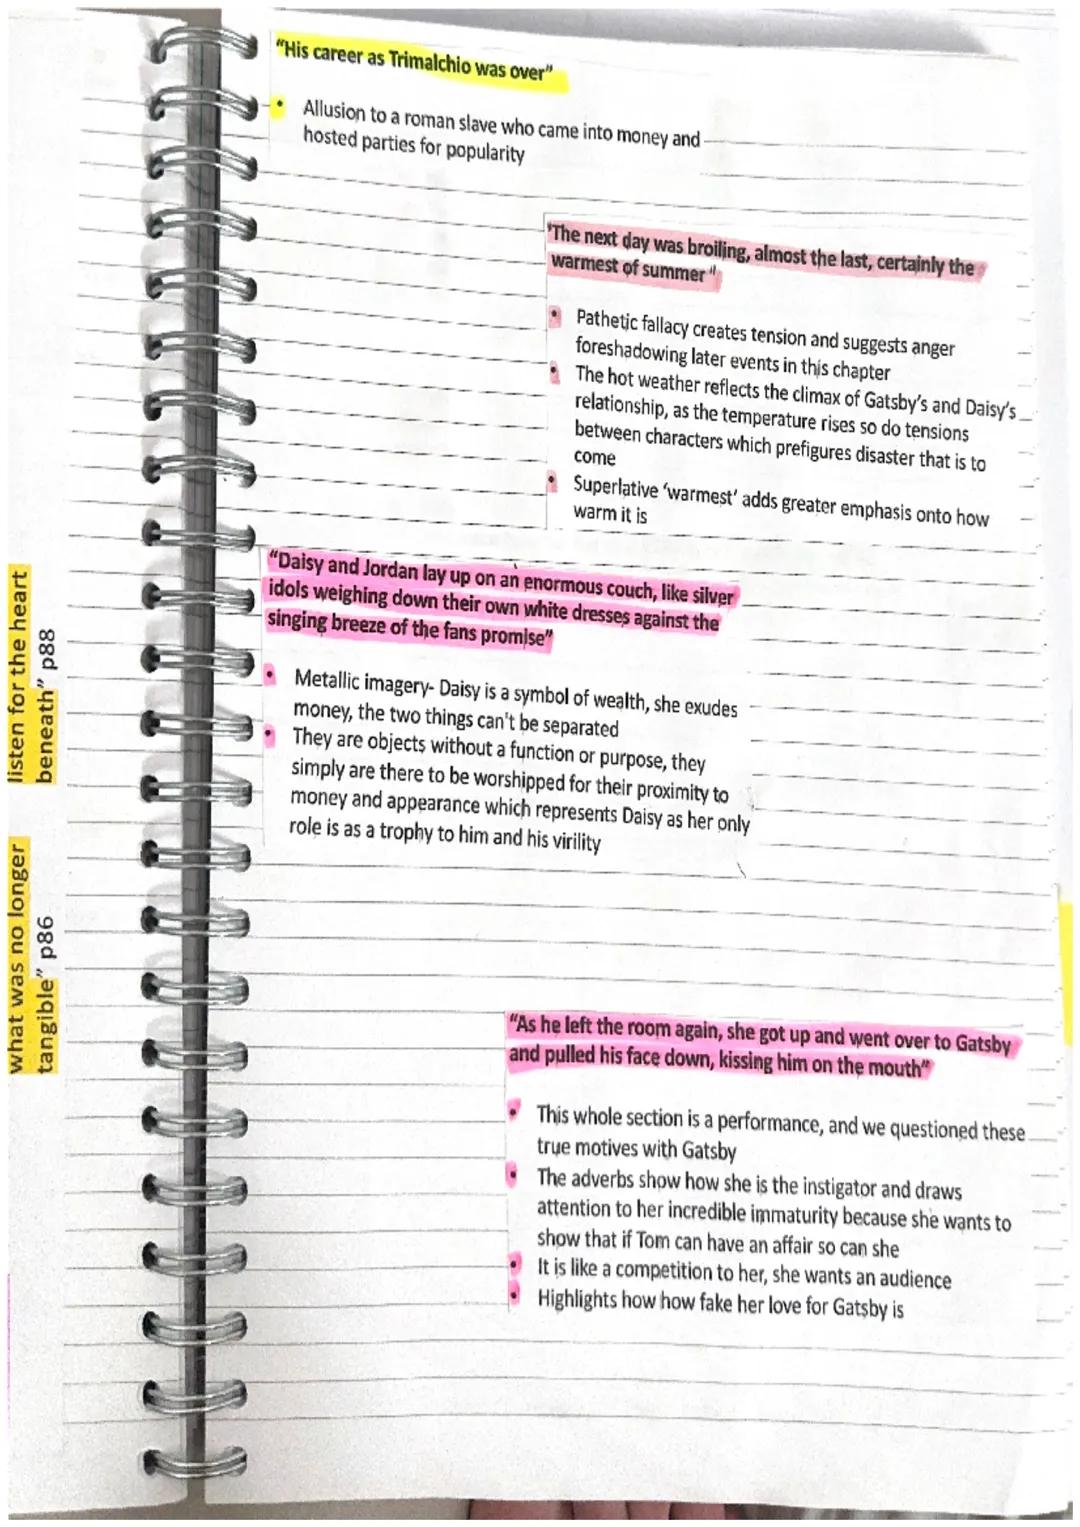 "His career as Trimalchio was over"
• Allusion to a roman slave who came into money and
hosted parties for popularity
"The next day was broiling, almost the last, certainly the
warmest of summer"
• Pathetic fallacy creates tension and suggests anger
foreshadowing later events in this chapter
• The hot weather reflects the climax of Gatsby's and Daisy's
relationship, as the temperature rises so do tensions
between characters which prefigures disaster that is to
come
• Superlative 'warmest' adds greater emphasis onto how
warm it is
"Daisy and Jordan lay up on an enormous couch, like silver
idols weighing down their own white dresses against the
singing breeze of the fans promise"
• Metallic imagery- Daisy is a symbol of wealth, she exudes
money, the two things can't be separated
• They are objects without a function or purpose, they
simply are there to be worshipped for their proximity to
money and appearance which represents Daisy as her only
role is as a trophy to him and his virility
"As he left the room again, she got up and went over to Gatsby
and pulled his face down, kissing him on the mouth"
• This whole section is a performance, and we questioned these
true motives with Gatsby
• The adverbs show how she is the instigator and draws
attention to her incredible immaturity because she wants to
show that if Tom can have an affair so can she
• It is like a competition to her, she wants an audience
• Highlights how how fake her love for Gatsby is
listen for the heart
beneath" p88
what was no longer
tangible" p86